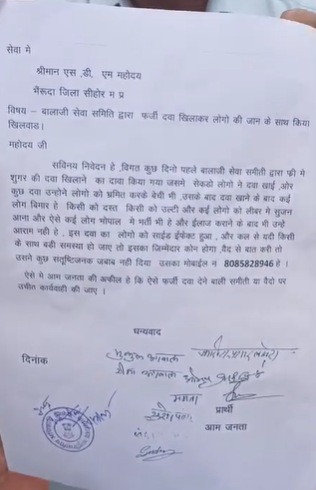 सेवा मे
श्रीमान एस .डी. एम महोदय
भैरूदा जिला सीहोर म प्र
विषय – बालाजी सेवा समिति द्वारा फर्जी दवा खिलाकर लोगो की जान के साथ किया
खिलवाड।
महोदय जी
सविनय निवेदन हे ,विगत कुछ दिनो पहले बालाजी सेवा समीती द्वारा फ्री मे
शुगर की दवा खिलाने का दावा किया गया जसमे सेकडो लोगो ने दवा खाई ,ओर
कुछ दवा उन्होने लोगो को भ्रमित करके बेची भी ,उसके बाद दवा खाने के बाद कई
लोग बिमार हे किसी को दस्त किसी को उल्टी और कई लोगो को लीबर मे सुजन
आना और ऐसे कई लोग भोपाल मे भर्ती भी हे और ईलाज कराने के बाद भी उन्हे
आराम नही हे . इस दवा का लोगो को साईड ईफेक्ट हुआ , और कल से यदी किसी
के साथ बडी समस्या हो जाए तो इसका जिम्मेदार कोन होगा ,वैद से बात करी तो
उसने कुछ सतुष्टिजनक जबाब नही दिया उसका मोबाईल न 8085828946 हे ।
ऐसे मे आम जनता की अपील हे कि ऐसे फर्जी दवा देने बाली समीती या वैदो पर
उचीत कार्यवाही की जाए ।
धन्यवाद
दिनाक
ममता
प्रार्थी
आम जनता